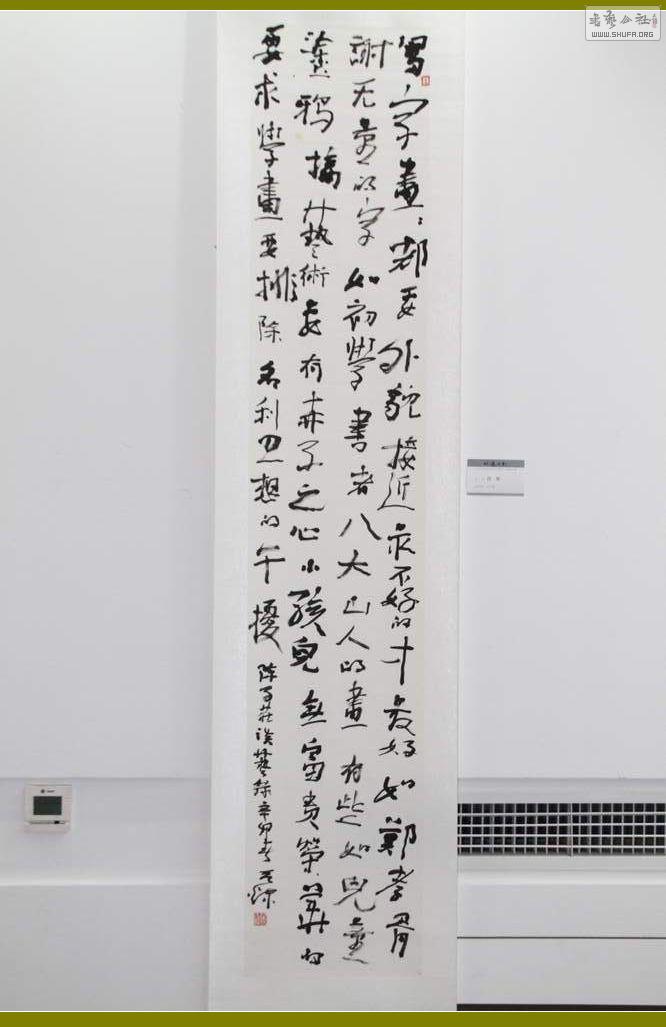 寫字畫、都要外貌接近最不好的才最好如鄭孝胥
謝无量的字如初學書者八大山人的畫有些如兒童
塗鴉搞藝術要有赤子之心小孩兒無富貴榮華的
要求學畫要排除名利思想的干擾
陳子莊談藝錄辛卯春
WWW.SHUFA.ORG